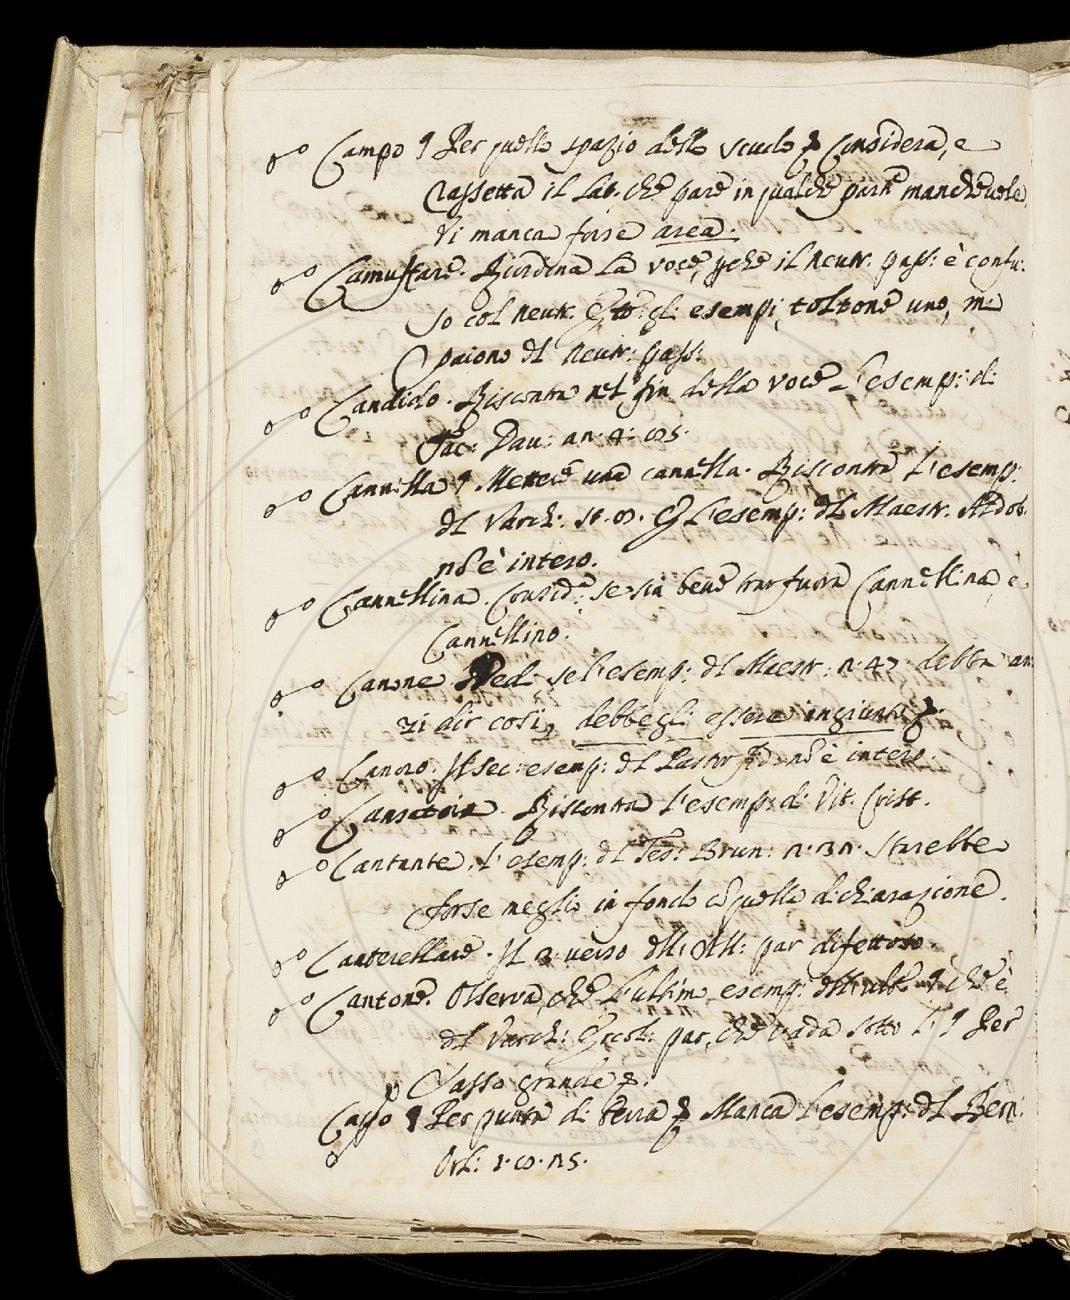 Campo § Per quello spazio dello scudo & Considera, e
rassetta il Lat. che pare in qualche parte manchevole
Vi manca forse area.
Camuffare. Riordina la voce, pche il neutr. pass: è confu-
so col neutr. E tt: gl: esempi, toltone uno, mi
paiono dl neutr: pass:
Candido. Riscontra nel fin della voce l'esemp: di
Tac: Dav: an: 4:
Cannella § Mettere una cannella. Riscontra l'esemp:
dl Varch: st. E l'esemp: dl Maestr. Aldob.
nō è intero.
Cannellina. Consid: se sia bene trar fuora Cannellina, e
Cannellino.
Canone Vedi se l'esemp: dl Maestr: n: 47 debba an-
zi dir così, debbegli essere ingiunta &.
Canoro. Il sec: esemp: dl Pastor fid. nō è intero.
Cansatoia. Riscontra l'esemp: di Vit. Crist.
Cantante. l'esemp: dl Tes: Brun: Starebbe
forse meglio in fondo cō quella dichiarazione.
Canterellare. Il 3. verso dll: All: par difettoso.
Cantone. Osserva, che l'ultimo esemp: dll: ult: § che è
dl Varch: Ercol: par, che vada sotto l: § Per
sasso grande &.
Capo § Per punta di terra & Manca l'esemp: dl Bern:
Orl: 1.